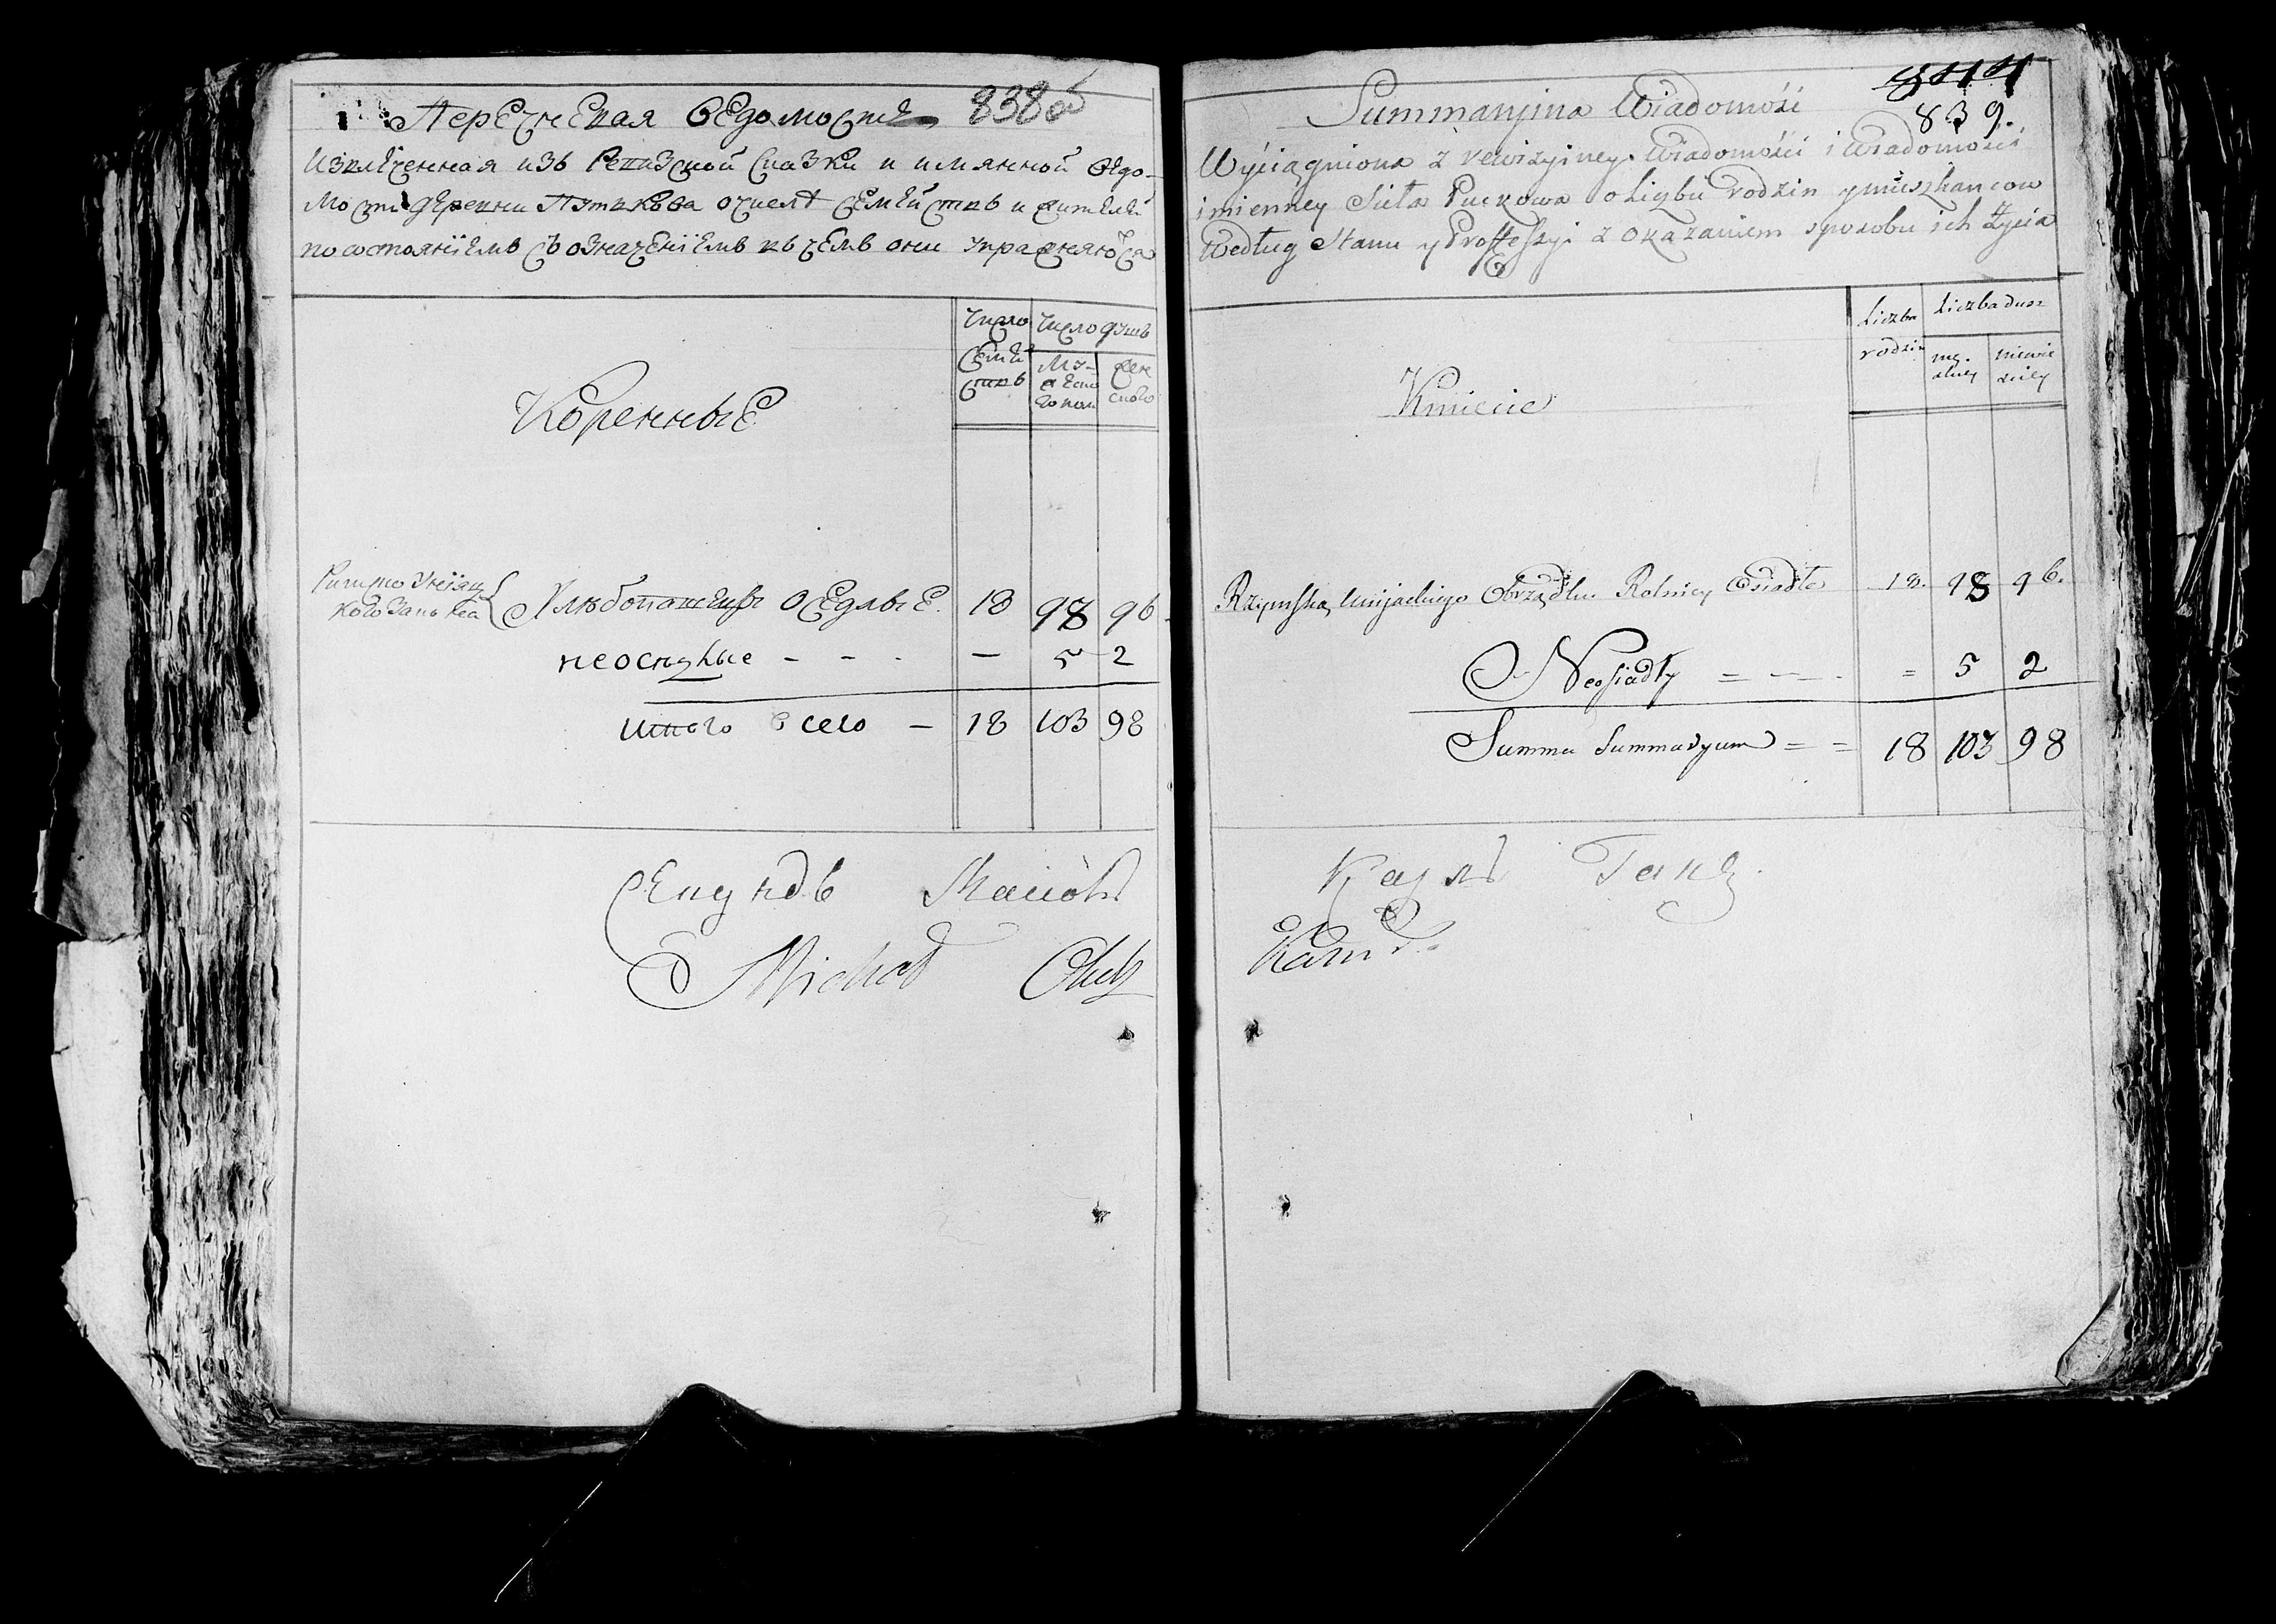 Перечневая Ведомость 838 об
Извлеченная изъ Ревизской Сказки и имянной Ведо-
мости деревни Путькова о числѣ семействъ и жителей
по состоянїемъ съ означенїемъ въ чемъ они упражняются
Число Семействъ
Число душъ
Мужескаго пола
Женскаго
Коренные
Римско Унїятскаго Закона
Хлѣбопашцы оседлые 18 98 96
неоседлые - - - — 5 2
итого всего — 18 103 98
Секундъ Маіоръ
Michał
Summaryjna Wiadomość
839.
Wyciągniona z rewizyiney Wiadomości i Wiadomości
imienney Sioła Puckowa o liczbie rodzin y mieszkancow
Według Stanu y Proffessyi z okazaniem sposobu ich życia
Liczba rodzin
Liczba dusz
męskiey
niewieskiey
Kmiecie
Rzymsko Unijackiego Obrządku Rolnicy Osiadłe 18. 98 96.
Neosiadły = — — = 5 2
Summa Summaryum = = 18 103 98
Карлъ